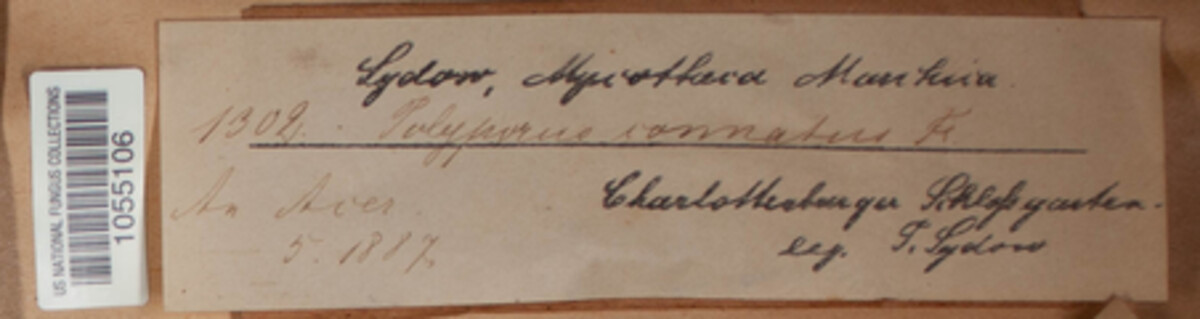 US NATIONAL FUNGUS COLLECTIONS
1055106
Sydow, Mycotheca Marchica.
1302. Polyporus connatus Fr
An Acer.
5. 1887.
Charlottenburger Schloßgarten.
leg. P. Sydow